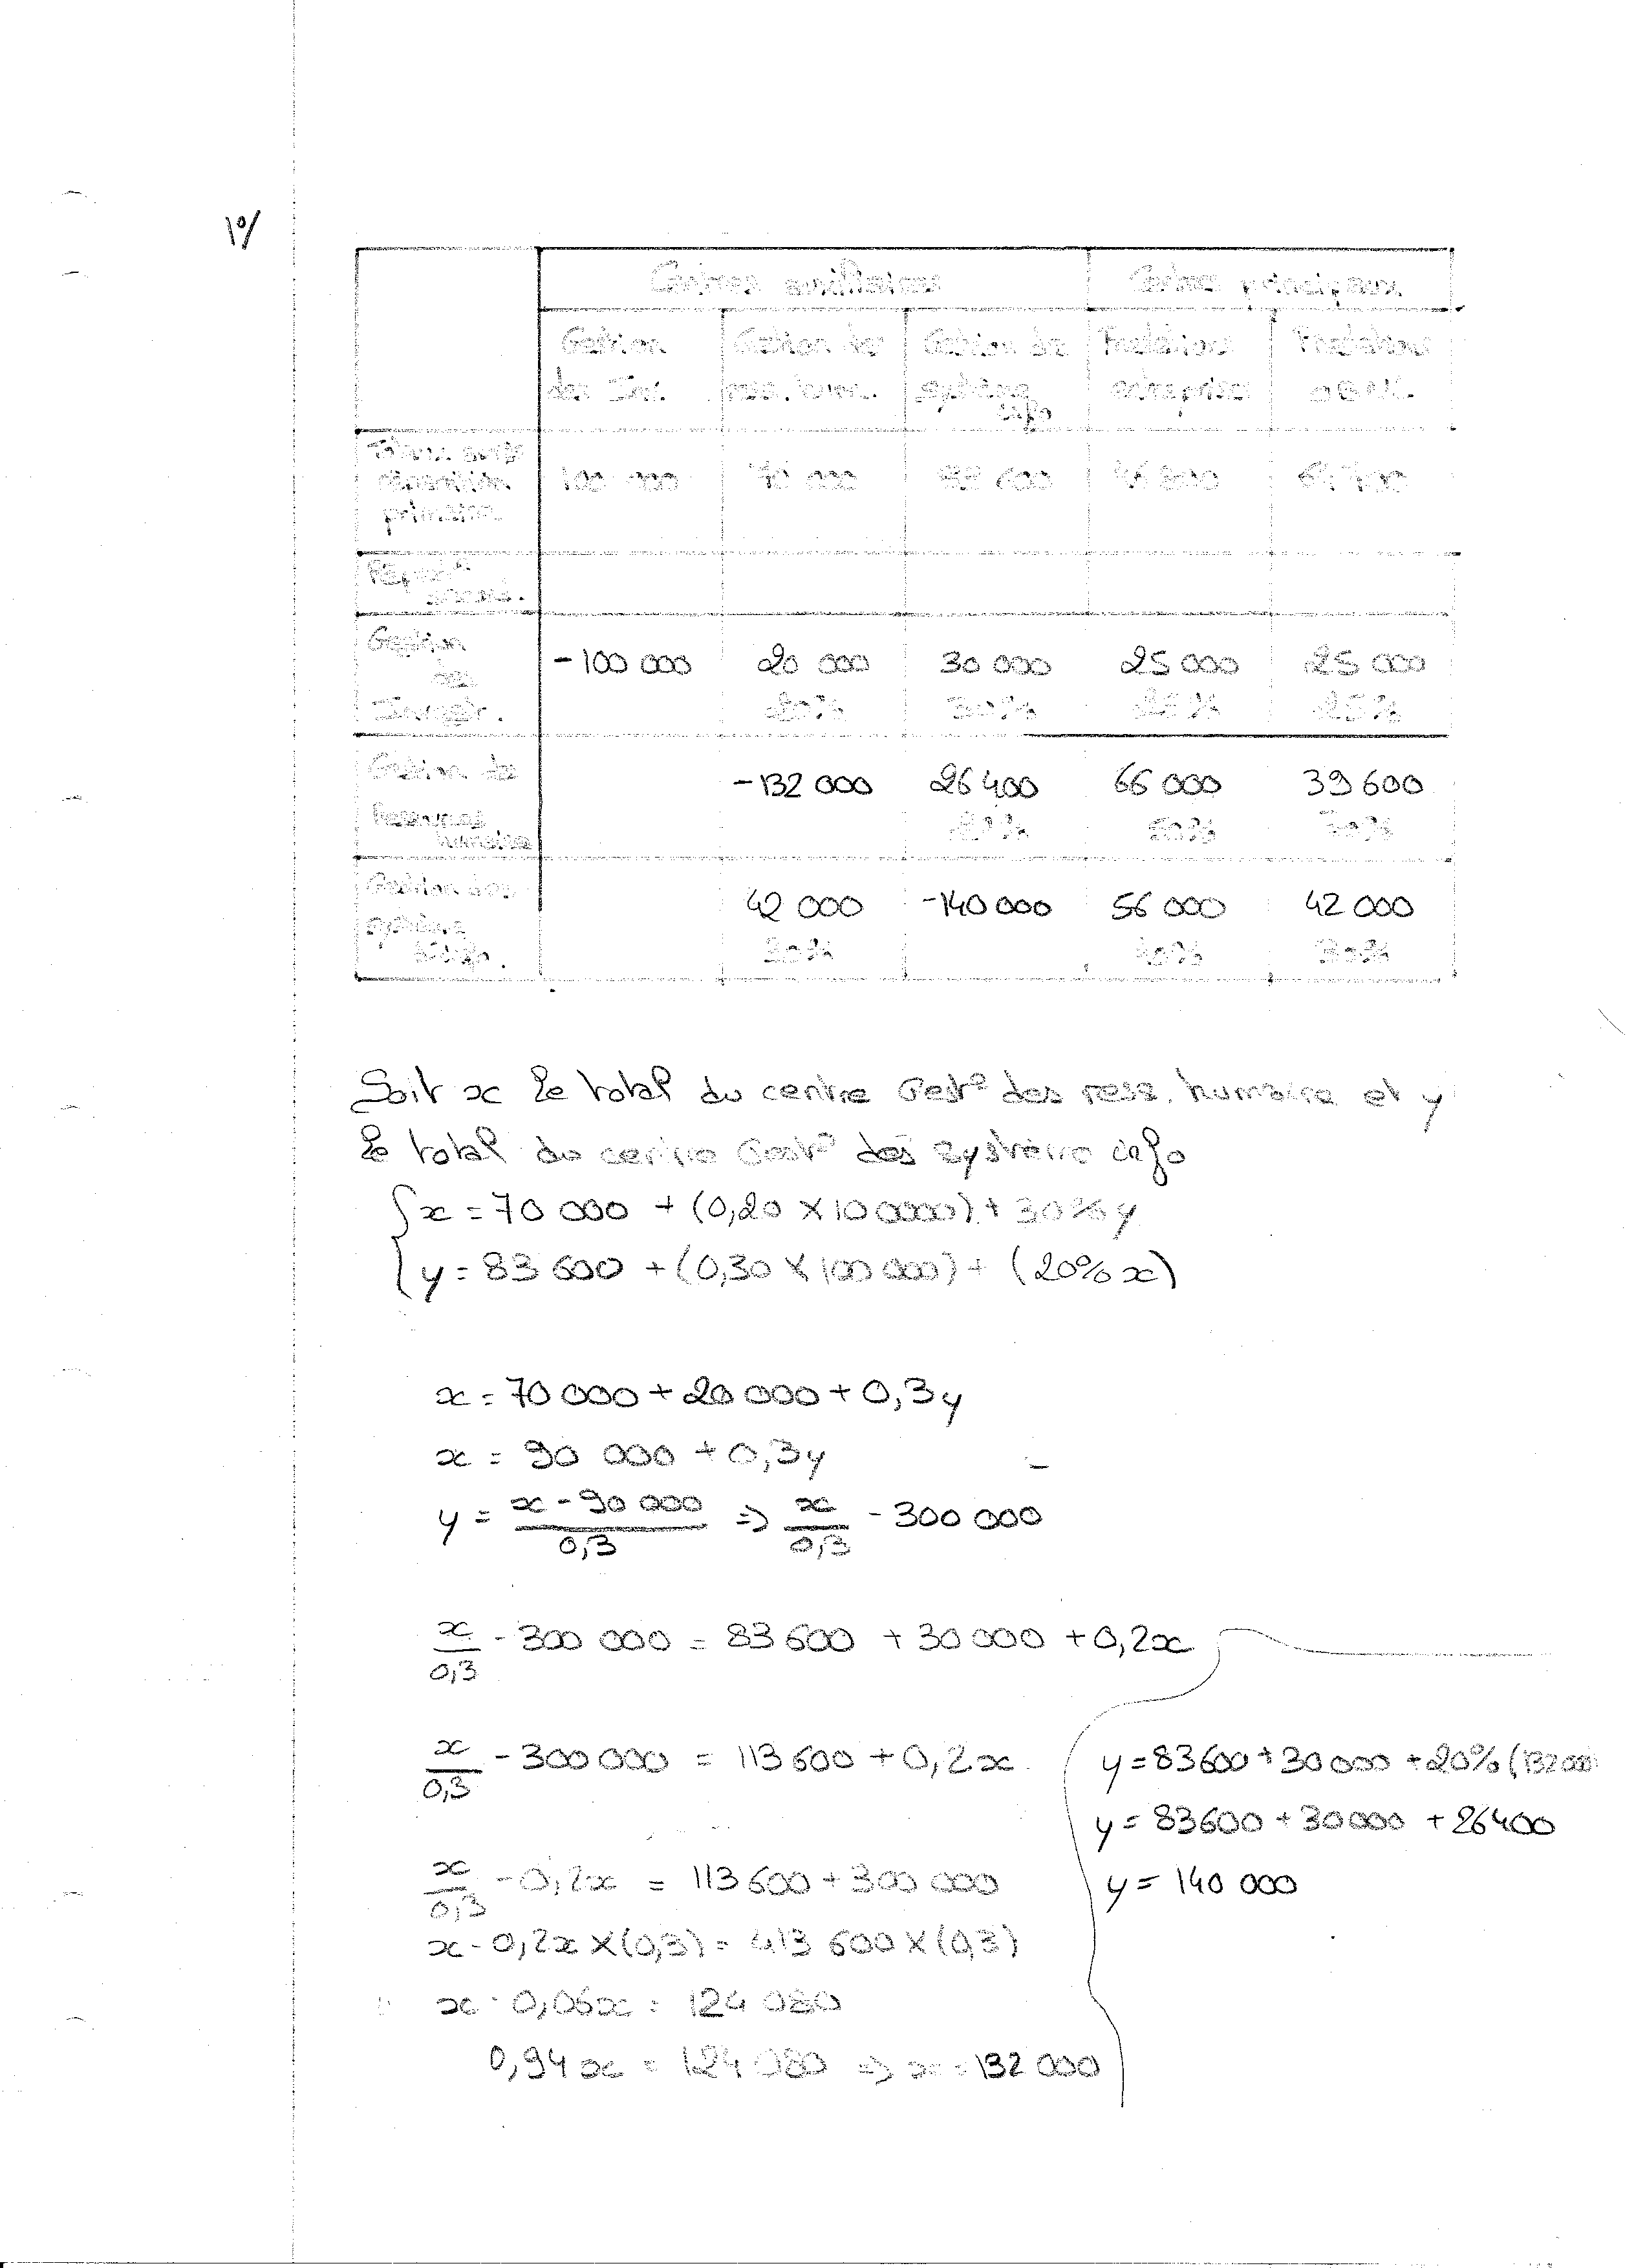 1°/
Centres auxiliaires Centres principaux
Gestion Gestion des Gestion des Prestations Prestations
des ress. humain. système entreprise
info
Totaux après
répartition 100 000 70 000 83 600
primaire
Gestion
des -100 000 20 000 30 000 25 000 25 000
20% 30% 25% 25%
Gestion des -132 000 26 400 66 000 39 600
Ressources 20% 50% 30%
humaines
Gestion des 42 000 -140 000 56 000 42 000
système 30% 40% 30%
info.
Soit x le total du centre Gest° des ress. humaire et y
le total du centre Gest° des système info
x = 70 000 + (0,20 x 100000) + 30% y
y = 83 600 + (0,30 x 100 000) + (20% x)
x = 70 000 + 20 000 + 0,3y
x = 90 000 + 0,3y
y = x - 90 000 / 0,3 => x / 0,3 - 300 000
x / 0,3 - 300 000 = 83 600 + 30 000 + 0,2x
x / 0,3 - 300 000 = 113 600 + 0,2x
x / 0,3 - 0,2x = 113 600 + 300 000
x - 0,2x X (0,3) = 413 600 X (0,3)
x - 0,06x = 124 080
0,94x = 124 080 => x = 132 000
y = 83600 + 30 000 + 20% (132 000
y = 83600 + 30 000 + 26400
y = 140 000